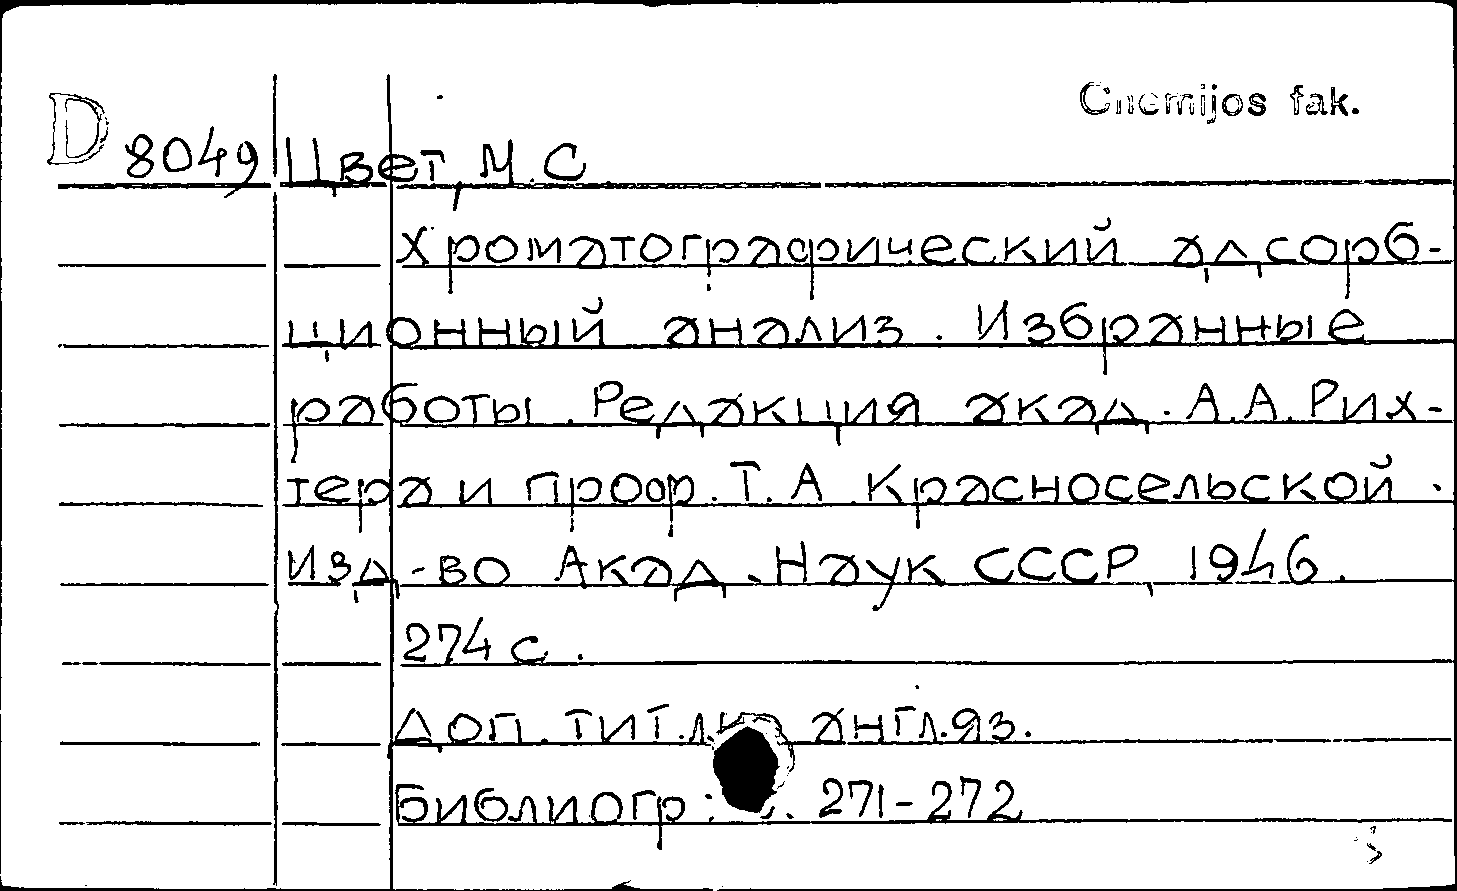 Chemijos fak.
D 8049 Цвет, М.С
Хроматографический адсорб-
ционный анализ. Избранные
работы. Редакция акад. А.А. Рих-
тера и проф. Т.А. Красносельской.
Изд-во Акад. Наук СССР, 1946.
274 с.
Доп. тит. англ.яз.
Библиогр: 271-272